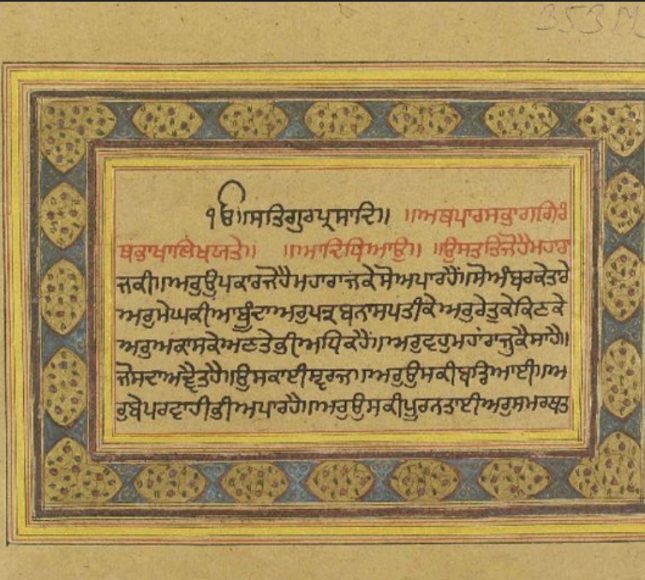 353 M
ੴ॥ਸਤਿਗੁਰਪ੍ਰਸਾਦਿ॥ ॥ਅਥਪਾਰਸਭਾਗਗਿਰੰ
ਥਭਾਖਾਲਿਖਯਤੇ॥ ॥ਆਦਿਧਿਆਉ॥ ॥ਉਸਤੁਤਿਜੋਹੈਮਹਾਰਾ
ਜਕੀ॥ਅਰੁਉਪਕਾਰਜੋਹੈਮਹਾਰਾਜਕੇਸੋਅਪਾਰਹੈਂ॥ਸੋਅੰਬਰਕੇਤਾਰੇ
ਅਰੁਮੇਘਕੀਆਬੂੰਦਾਅਰੁਪਤ੍ਰਬਨਾਸਪਤੀਕੇਅਰੁਰੇਤੁਕੇਕਿਣਕੇ
ਅਰੁਅਕਾਸਕੇਅਣਤੇਭੀਅਧਿਕਹੈਂ॥ਅਰੁਵਹੁਮਹਾਂਰਾਜੁਕੈਸਾਹੈ॥
ਜੋਸਦਾਅਦ੍ਵੈਤਹੈ॥ਉਸਕਾਈਸ੍ਵਰਜ॥ਅਰੁਉਸਕੀਬਡਿਆਈ॥ਅ
ਰੁਬੇਪਰਵਾਹੀਭੀਅਪਾਰਹੈ॥ਅਰੁਉਸਕੀਪੂਰਨਤਾਈਅਰੁਸਮਰਥਤ